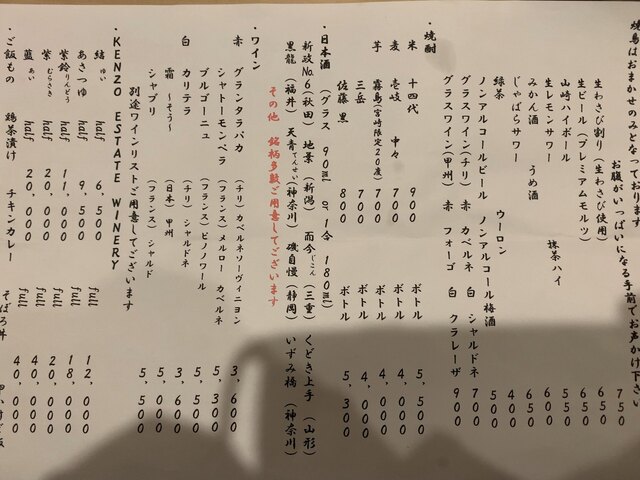 焼鳥はおまかせのみとなっております
お腹がいっぱいになる手前でお声かけ下さい
生わさび割り（生わさび使用） 750
生ビール（プレミアムモルツ） 650
山崎ハイボール 650
生レモンサワー 抹茶ハイ 650
みかん酒 うめ酒 650
じゃばらサワー 600
緑茶 ウーロン 400
ノンアルコールビール ノンアルコール梅酒 500
グラスワイン（チリ） 赤 カベルネ 白 シャルドネ 700
グラスワイン（甲州） 赤 フォーゴ 白 クラレーザ 900
・焼酎
米 十四代 900 ボトル 5,500
麦 壱岐 中々 700 ボトル 4,000
芋 霧島（宮崎限定20度） 700 ボトル 4,000
三岳 700 ボトル 4,000
佐藤 黒 800 ボトル 5,300
・日本酒（グラス 90ml or 1合 180ml）
新政No.6（秋田） 地景（新潟） 而今じこん（三重） くどき上手（山形）
黒龍（福井） 天青てんせい（神奈川） 磯自慢（静岡） いずみ橋（神奈川）
その他 銘柄多数ご用意してございます
・ワイン
赤 グランタラパカ（チリ）カベルネソーヴィニヨン 3,600
シャトーモンペラ（フランス）メルロー カベルネ 5,300
ブルゴーニュ（フランス）ピノノワール 5,500
白 カリテラ（チリ）シャルドネ 3,600
霜 ～そう～（日本）甲州 5,500
シャブリ（フランス）シャルドネ 5,500
別途ワインリストご用意してございます
KENZO ESTATE WINERY
結 ゆい half 6,500 full 12,000
あさつゆ half 9,500 full 18,000
紫鈴 りんどう half 11,000 full 20,000
紫 むらさき half 20,000 full 40,000
藍 あい half 20,000 full 40,000
・ご飯もの 鶏茶漬け チキンカレー そぼろ丼